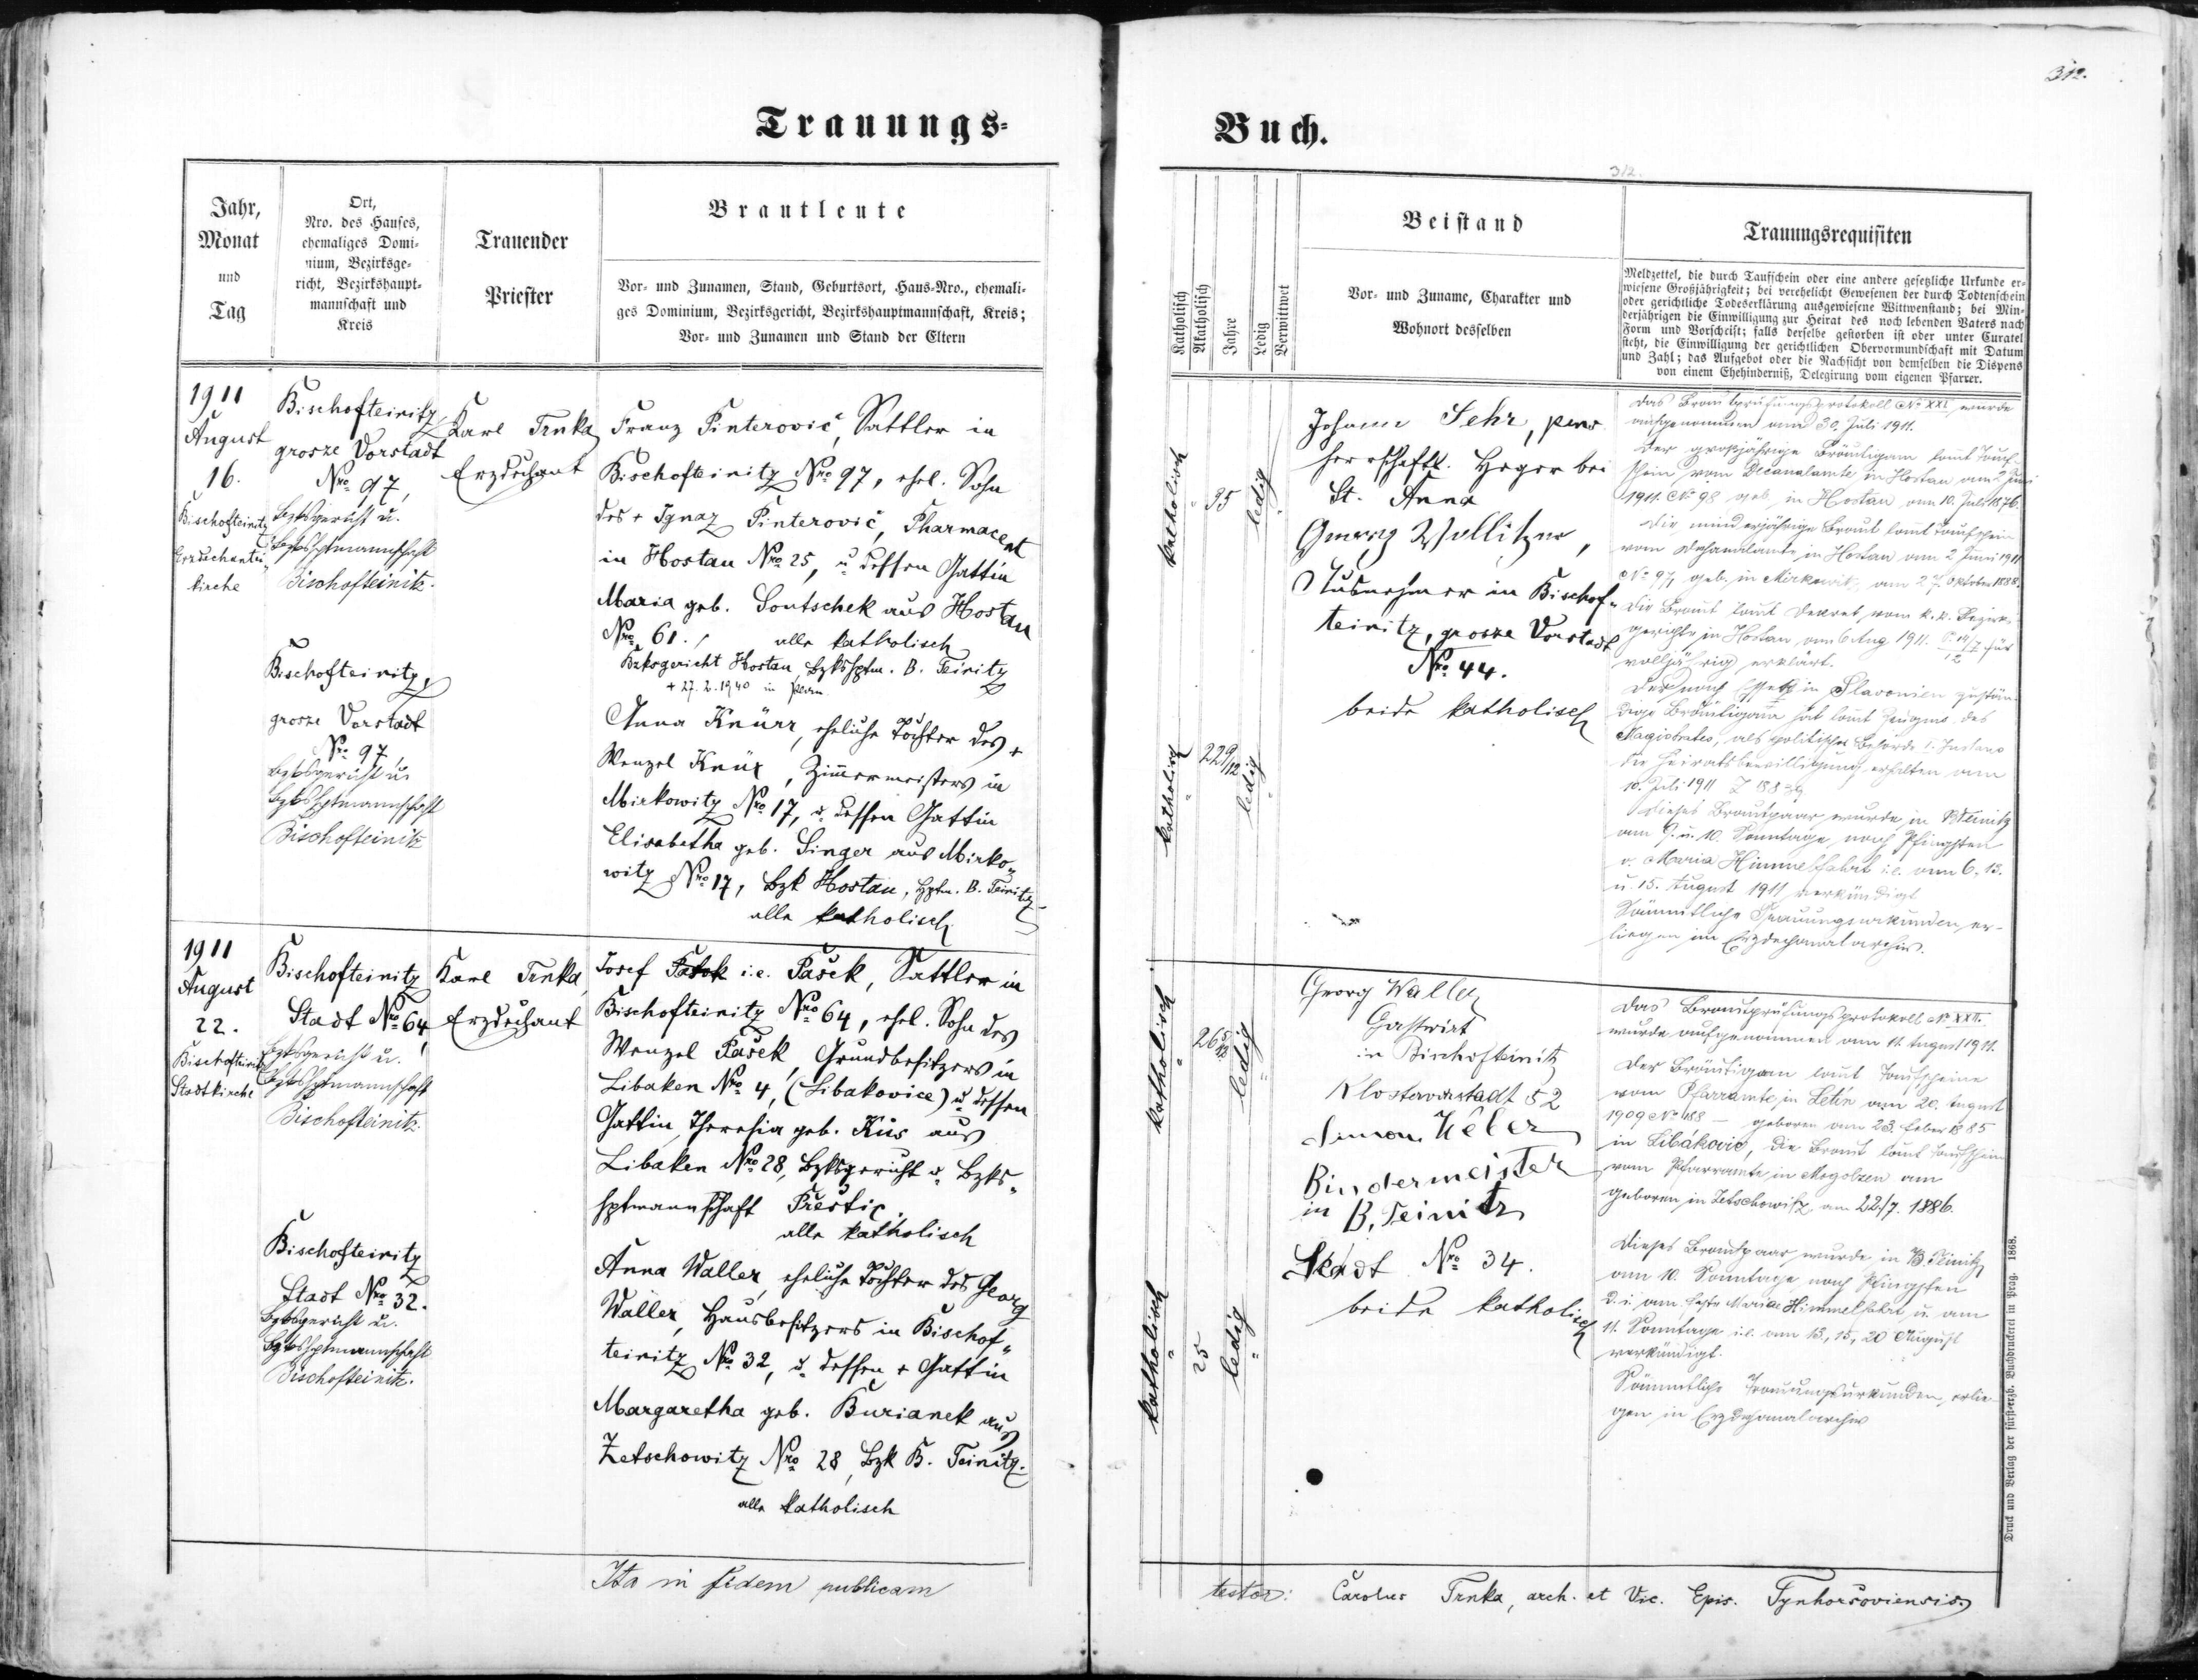 312.
Trauungs-
Buch.
312.
Jahr,
Monat
und
Tag
Ort,
Nro. des Hauses,
ehemaliges Domi-
nium, Bezirksge-
richt, Bezirkshaupt-
mannschaft und
Kreis
Trauender
Priester
Brautleute
Vor- und Zunamen, Stand, Geburtsort, Haus-Nro., ehemali-
ges Dominium, Bezirksgericht, Bezirkshauptmannschaft, Kreis;
Vor- und Zunamen und Stand der Eltern
Katholisch
Akatholisch
Jahre
Ledig
Verwittwet
Beistand
Vor- und Zuname, Charakter und
Wohnort desselben
Trauungsrequisiten
Meldzettel, die durch Taufschein oder eine andere gesetzliche Urkunde er-
wiesene Großjährigkeit; bei verehelicht Gewesenen der durch Todtenschein
oder gerichtliche Todeserklärung ausgewiesene Wittwenstand; bei Min-
derjährigen die Einwilligung zur Heirat des noch lebenden Vaters nach
Form und Vorschrift; falls derselbe gestorben ist oder unter Curatel
steht, die Einwilligung der gerichtlichen Obervormundschaft mit Datum
und Zahl; das Aufgebot oder die Nachsicht von demselben die Dispens
von einem Ehehinderniß, Delegirung vom eigenen Pfarrer.
1911
August
16.
Bischofteinitz
Erzdechantei-
kirche
Bischofteinitz
grosze Vorstadt
Nro 97,
Bzksgericht u.
Bzkshptmannschaft
Bischofteinitz.
Bischofteinitz,
grosze Vorstadt
Nro 97,
Bzksgericht u.
Bzkshptmannschaft
Bischofteinitz
Karl Trnka
Erzdechant
Franz Pinterović, Sattler in
Bischofteinitz Nro 97, ehel. Sohn
des + Ignaz Pinterović, Pharmaceut
in Hostau Nro 25, u. dessen Gattin
Maria geb. Soutschek aus Hostau
Nro 61., alle katholisch
Bzksgericht Hostau, Bzkshptm. B. Teinitz
+ 27. 2. 1940 in Plan
Anna Knürr, eheliche Tochter des +
Wenzel Knür, Zimmermeisters in
Mirkowitz Nro 17, u. dessen Gattin
Elisabetha geb. Singer aus Mirko-
witz Nro 17, Bzk Hostau, Hptm. B. Teinitz
alle katholisch
katholisch
35
ledig
katholisch
22 9/12
ledig
Johann Sehr, pens.
herrschaftl. Heger bei
St. Anna
Georg Wollitzer,
Ausnehmer in Bischof-
teinitz, grosze Vorstadt
Nro 44.
beide katholisch
Das Brautprüfungsprotokoll No XXI wurde
aufgenommen am 30. Juli 1911.
Der großjährige Bräutigam laut Tauf-
schein vom Decanalamte in Hostau am 2 Juni
1911. No 98 geb. in Hostau am 10. Juli 1876.
Die minderjährige Braut laut Taufschein
vom Dechanalamte in Hostau am 2 Juni 1911
No 97, geb. in Mirkowitz am 27. Oktober 1888.
Die Braut laut Dekret vom k. k. Bezirks-
gerichte in Hostau am 6 Aug 1911. für
volljährig erklärt.
Der nach in Slavonien zustän-
dige Bräutigam hat laut Zeugnis des
Magistrates, als politische Behörde I. Instanz
die Heiratsbewilligung erhalten am
10. Juli 1911
Dieses Brautpaar wurde in B. Teinitz
am 9. u. 10. Sonntage nach Pfingsten
u. Maria Himmelfahrt i.e. am 6. 13.
u. 15. August 1911 verkündigt.
Sämmtliche Trauungsurkunden er-
liegen im Erzdechanalarchiv.
1911
August
22.
Bischofteinitz
Stadtkirche
Bischofteinitz
Stadt Nro 64,
Bzksgericht u.
Bzkshptmannschaft
Bischofteinitz.
Bischofteinitz
Stadt Nro 32.
Bzksgericht u.
Bzkshptmannschaft
Bischofteinitz.
Karl Trnka,
Erzdechant
Josef i.e. Pašek, Sattler in
Bischofteinitz Nro 64, ehel. Sohn des
Wenzel Pašek, Grundbesitzers in
Libaken Nro 4, (Libakovice) u. dessen
Gattin Theresia geb. Küs aus
Libaken Nro 28, Bzksgericht u. Bzks-
hptmannschaft Přestic.
alle katholisch
Anna Waller, eheliche Tochter des Georg
Waller, Hausbesitzers in Bischof-
teinitz No 32, u. dessen + Gattin
Margaretha geb. Burianek aus
Zetschowitz Nro 28, Bzk B. Teinitz.
alle katholisch
katholisch
26 5/12
ledig
katholisch
25
ledig
Georg Waller
Gastwirt
in Bischofteinitz
Klostervorstadt 52
Simon Weber
Bindermeister
in B. Teinitz
Stadt No 34.
beide katholisch
Das Brautprüfungsprotokoll No XXII.
wurde aufgenommen am 11. August 1911.
Der Bräutigam laut Taufscheine
vom Pfarramte in Letin am 20. August
1909 No 188 – geboren am 23. Feber 1885
in Libákovic, die Braut laut Taufschein
vom Pfarramte in Mogolzen am
geboren in Zetschowitz am 22/7. 1886.
Dieses Brautpaar wurde in B. Teinitz
am 10. Sonntage nach Pfingsten
d. i. am Feste Maria Himmelfahrt u. am
11. Sonntage i.e. am 13., 15., 20 August
verkündigt.
Sämmtliche Trauungsurkunden erlie-
gen in Erzdechanalarchiv
Druck und Verlag der fürst-erzb. Buchdruckerei in Prag. 1868.
Ita in fidem publicam
testor: Carolus Trnka, arch. et Vic. Epis. Tynhoršoviensis